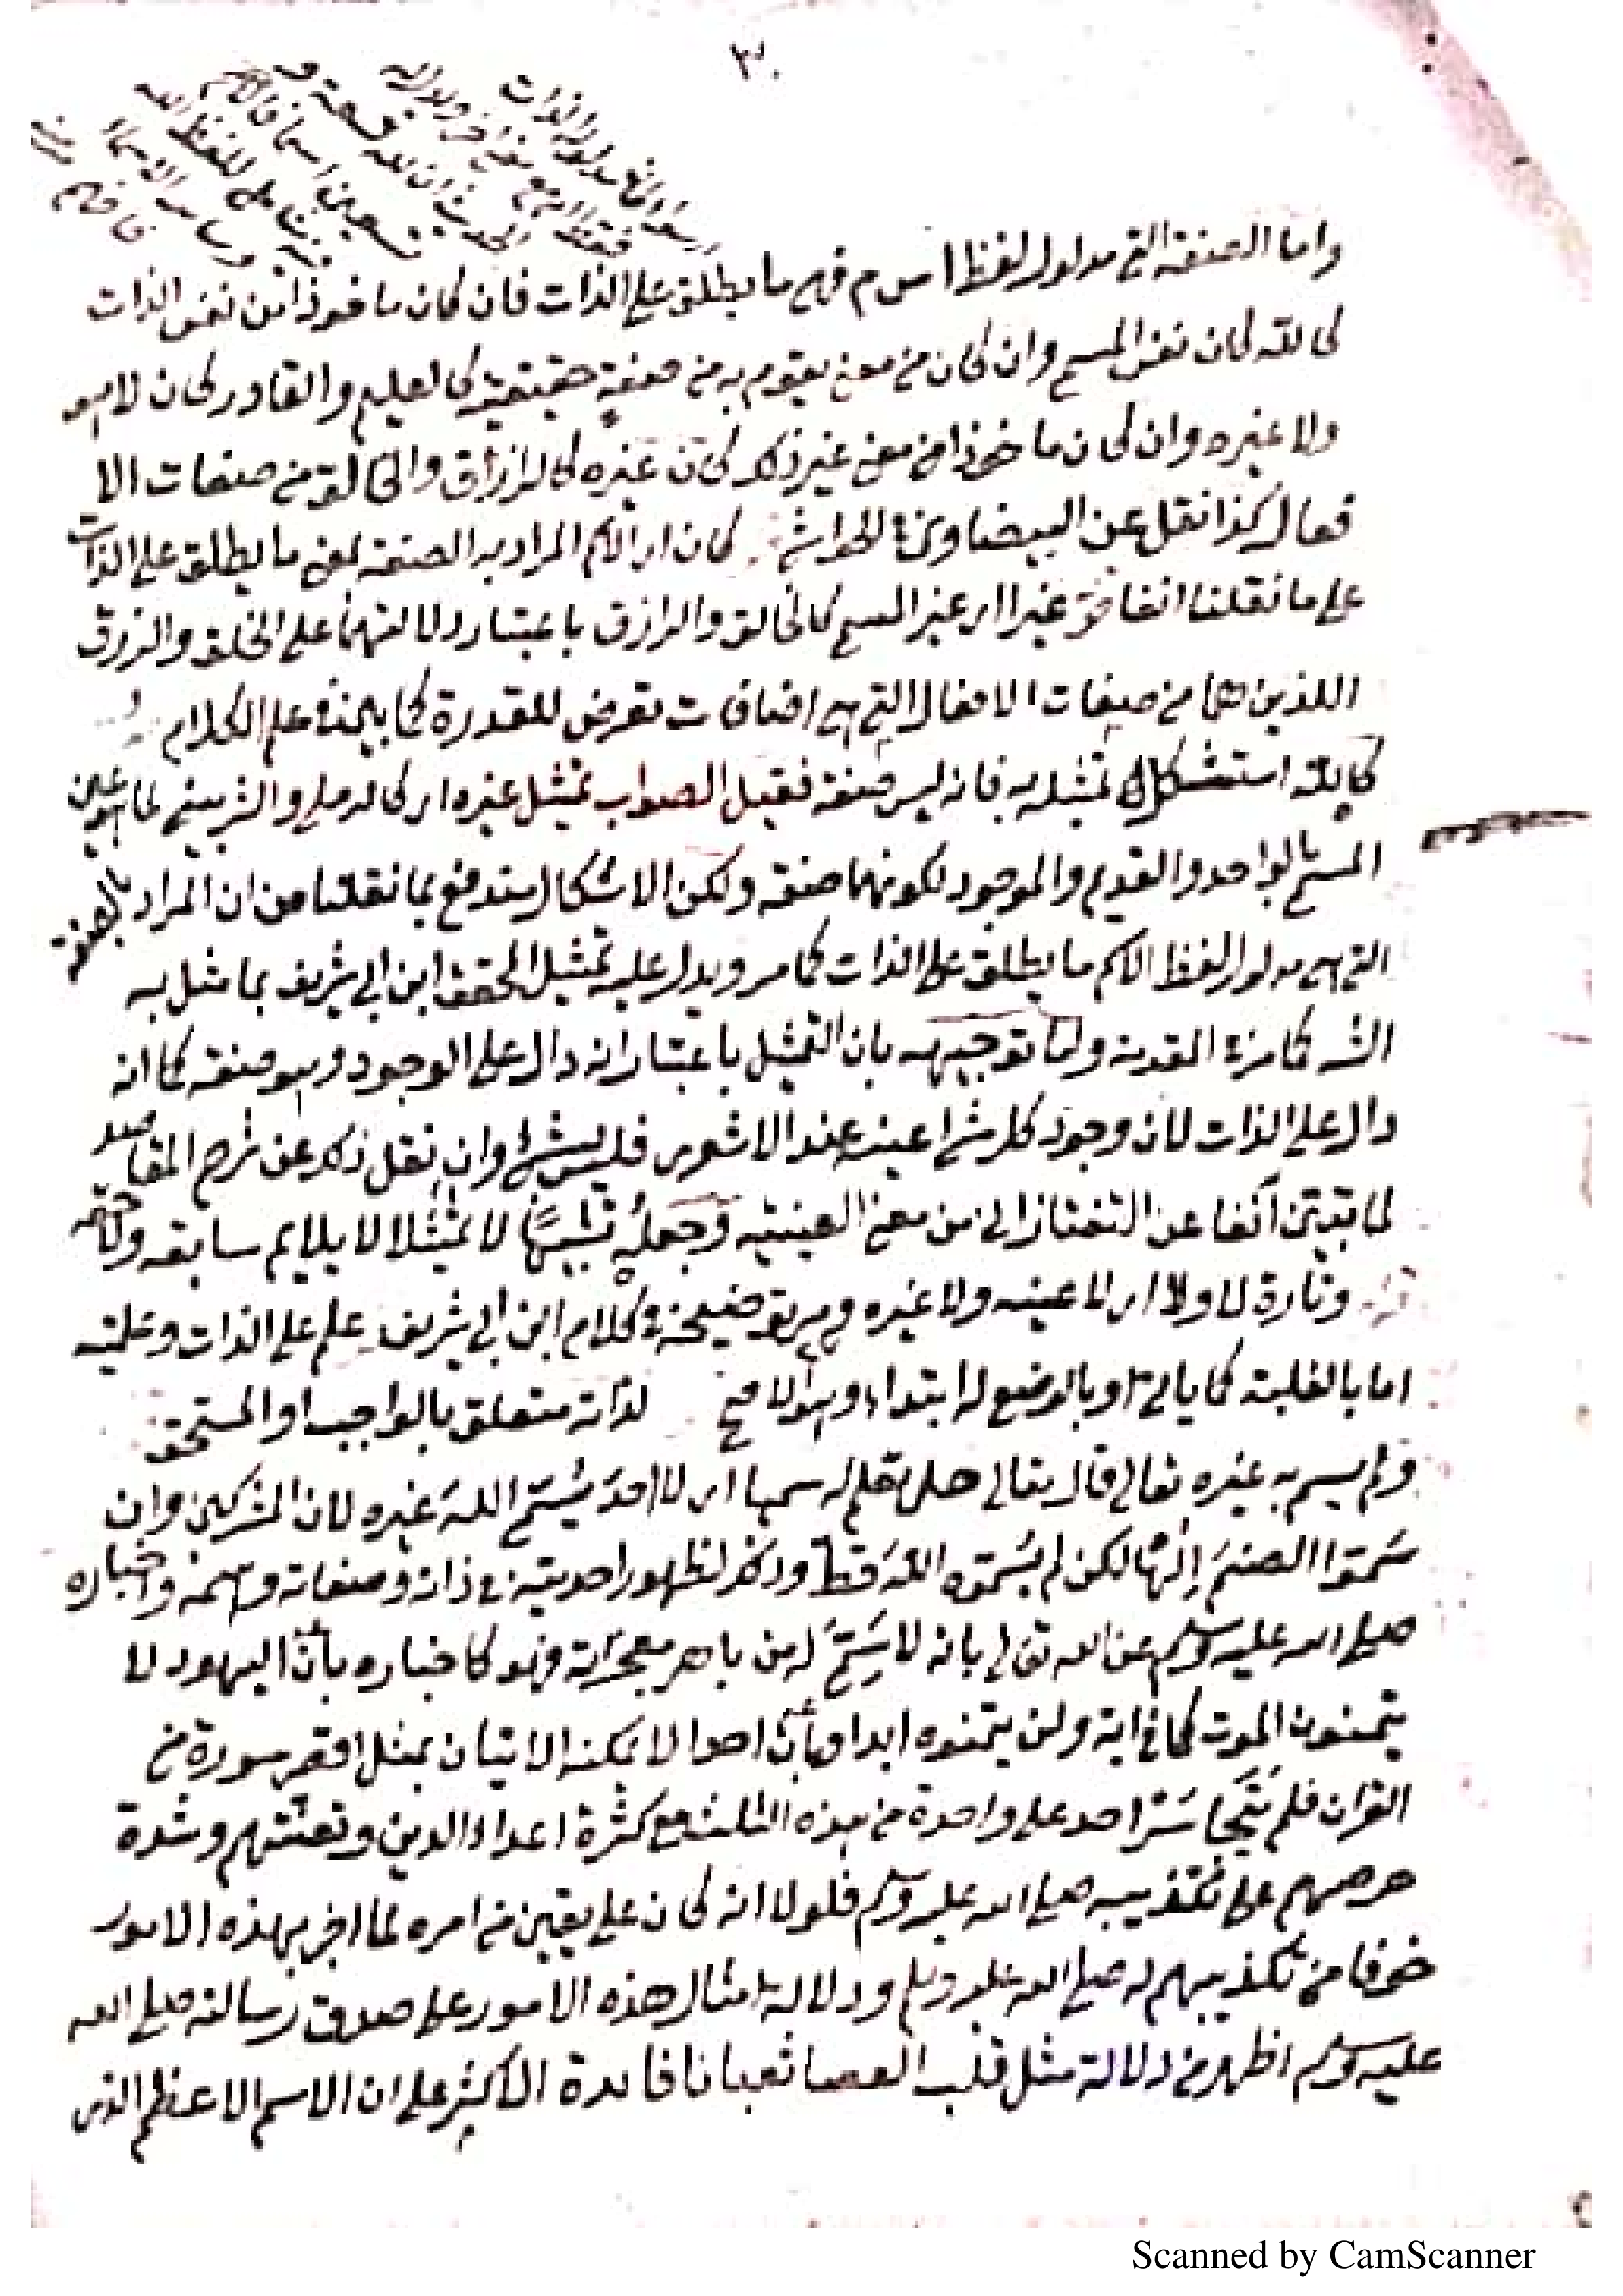 ٣٠
واما الصفة التي مدلول لفظ اس م فهي ما يطلق على الذات فان كان ماخوذا من نفس الذات
كالله كان نفس المسمى وان كان من معنى يقوم به من صفة حقيقية كالعليم والقادر كان لا هو
ولا غيره وان كان ماخوذا من معنى غير ذلك كان غيره كالرزاق والخالق من صفات الا
فعال كذا نقل عن البيضاوي في الحواشي كان اي الاسم المراد به الصفة بمعنى ما يطلق على الذات
على ما نقلنا انفا غيرا اي غير المسمى كالخالق والرازق باعتبار دلالتهما على الخلق والرزق
اللذين هما من صفات الافعال التي هي اضافات تعرض للقدرة كما بين في علم الكلام
كالله استشكل تمثيله به فانه ليس صفة فقيل الصواب تمثيل غيره اي كالرملي والشربيني لما هو عين
المسمى بالواحد والقديم والموجود لكونهما صفة ولكن الاشكال مندفع بما نقلنا من ان المراد بالصفة
التي هي مدلول لفظ الاسم ما يطلق على الذات كما مر ويدل عليه تمثيل المحقق ابن ابي شريف بما مثل به
الشه كما مر في المقدمة واما توجيهه بان التمثيل باعتبار انه دال على الوجود وهو صفة كما انه
دال على الذات لان وجود كل شيء عينه عند الاشعري فليس بشيء وان نقل ذلك عن شرح المقاصد
لما تبين آنفا عن التفتازاني من معنى العينية وجعله تشبيها لا تمثيلا لا يلايم سابقه ولاحقه
وتارة لا ولا اي لا عينه ولا غيره ومر توضيحه في كلام ابن ابي شريف علم على الذات وعلميته
اما بالغلبة كما ياتي او بالوضع له ابتداء وهو الاصح لذاته متعلق بالواجب او المستحق
ولم يسم به غيره تعالى قال تعالى هل تعلم له سميا اي لا احد يسمى الله غيره لان المشركين وان
سموا الصنم الها لكن لم يسموه الله قط وذلك لظهور احديته في ذاته وصفاته واسمه واخباره
صلى الله عليه وسلم عن الله تعالى بانه لا سمي له من باهر معجزاته فهو كاخباره بان اليهود لا
يتمنون الموت كما في اية ولن يتمنوه ابدا وبان احدا لا يمكنه الاتيان بمثل اقصر سورة من
القران فلم يتجاسر احد على واحدة من هذه الثلث مع كثرة اعداء الدين وتعنتهم وشدة
حرصهم على تكذيبه صلى الله عليه وسلم فلولا انه كان على يقين من امره لما اخبر بهذه الامور
خوفا من تكذيبهم له صلى الله عليه وسلم ودلالة امثال هذه الامور على صدق رسالته صلى الله
عليه وسلم اظهر من دلالة مثل قلب العصا ثعبانا فائدة الاكثر على ان الاسم الاعظم الذي
Scanned by CamScanner